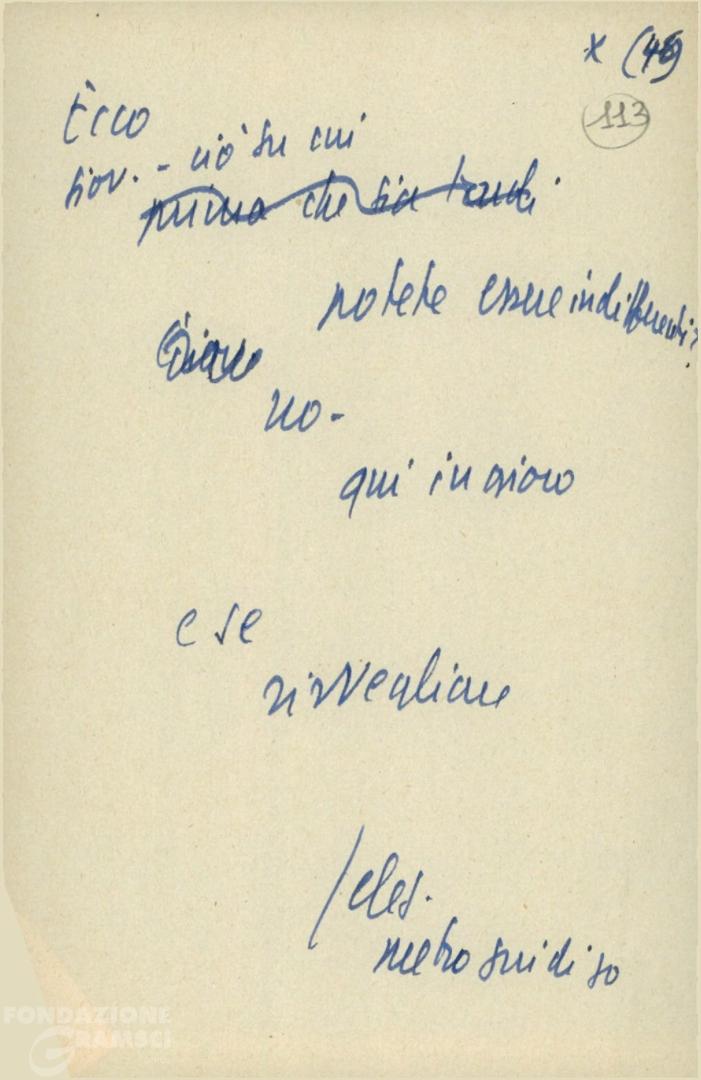 x (46)
113
Ecco
giov. - ciò su cui
prima che sia tardi
potete essere indifferenti?
no -
qui in gioco
e se
risvegliare
FONDAZIONE
GRAMSCI